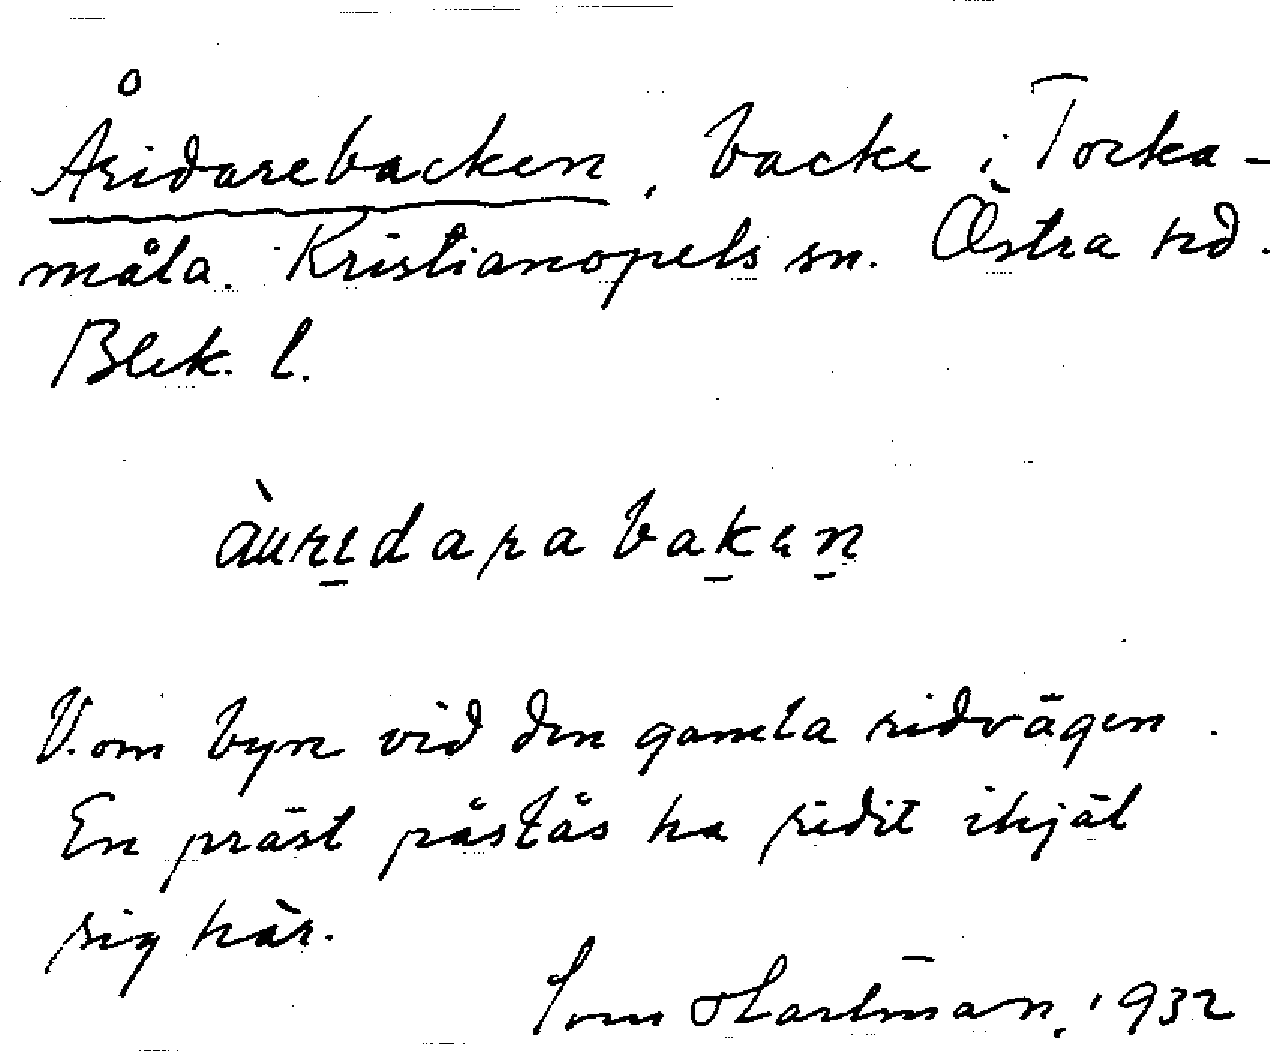 Åridarebacken, backe i Torka-
måla. Kristianopels sn. Östra hd.
Blek. l.
àuridarabakęn
V. om byn vid den gamla ridvägen.
En präst påstås ha ridit ihjäl
sig här.
Hartman, 1932